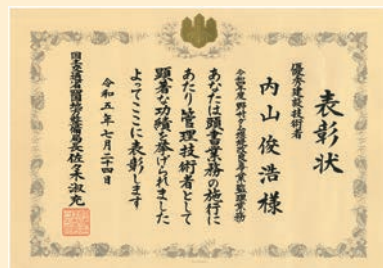 表彰状
優秀建設技術者
内山俊浩様
令和四年度 野村ダム堰堤改良事業監理業務
あなたは頭書業務の施行に
あたり管理技術者として
顕著な功績を挙げられました
よってここに表彰します
令和五年七月二十四日
国土交通省四国地方整備局長佐々木淑充